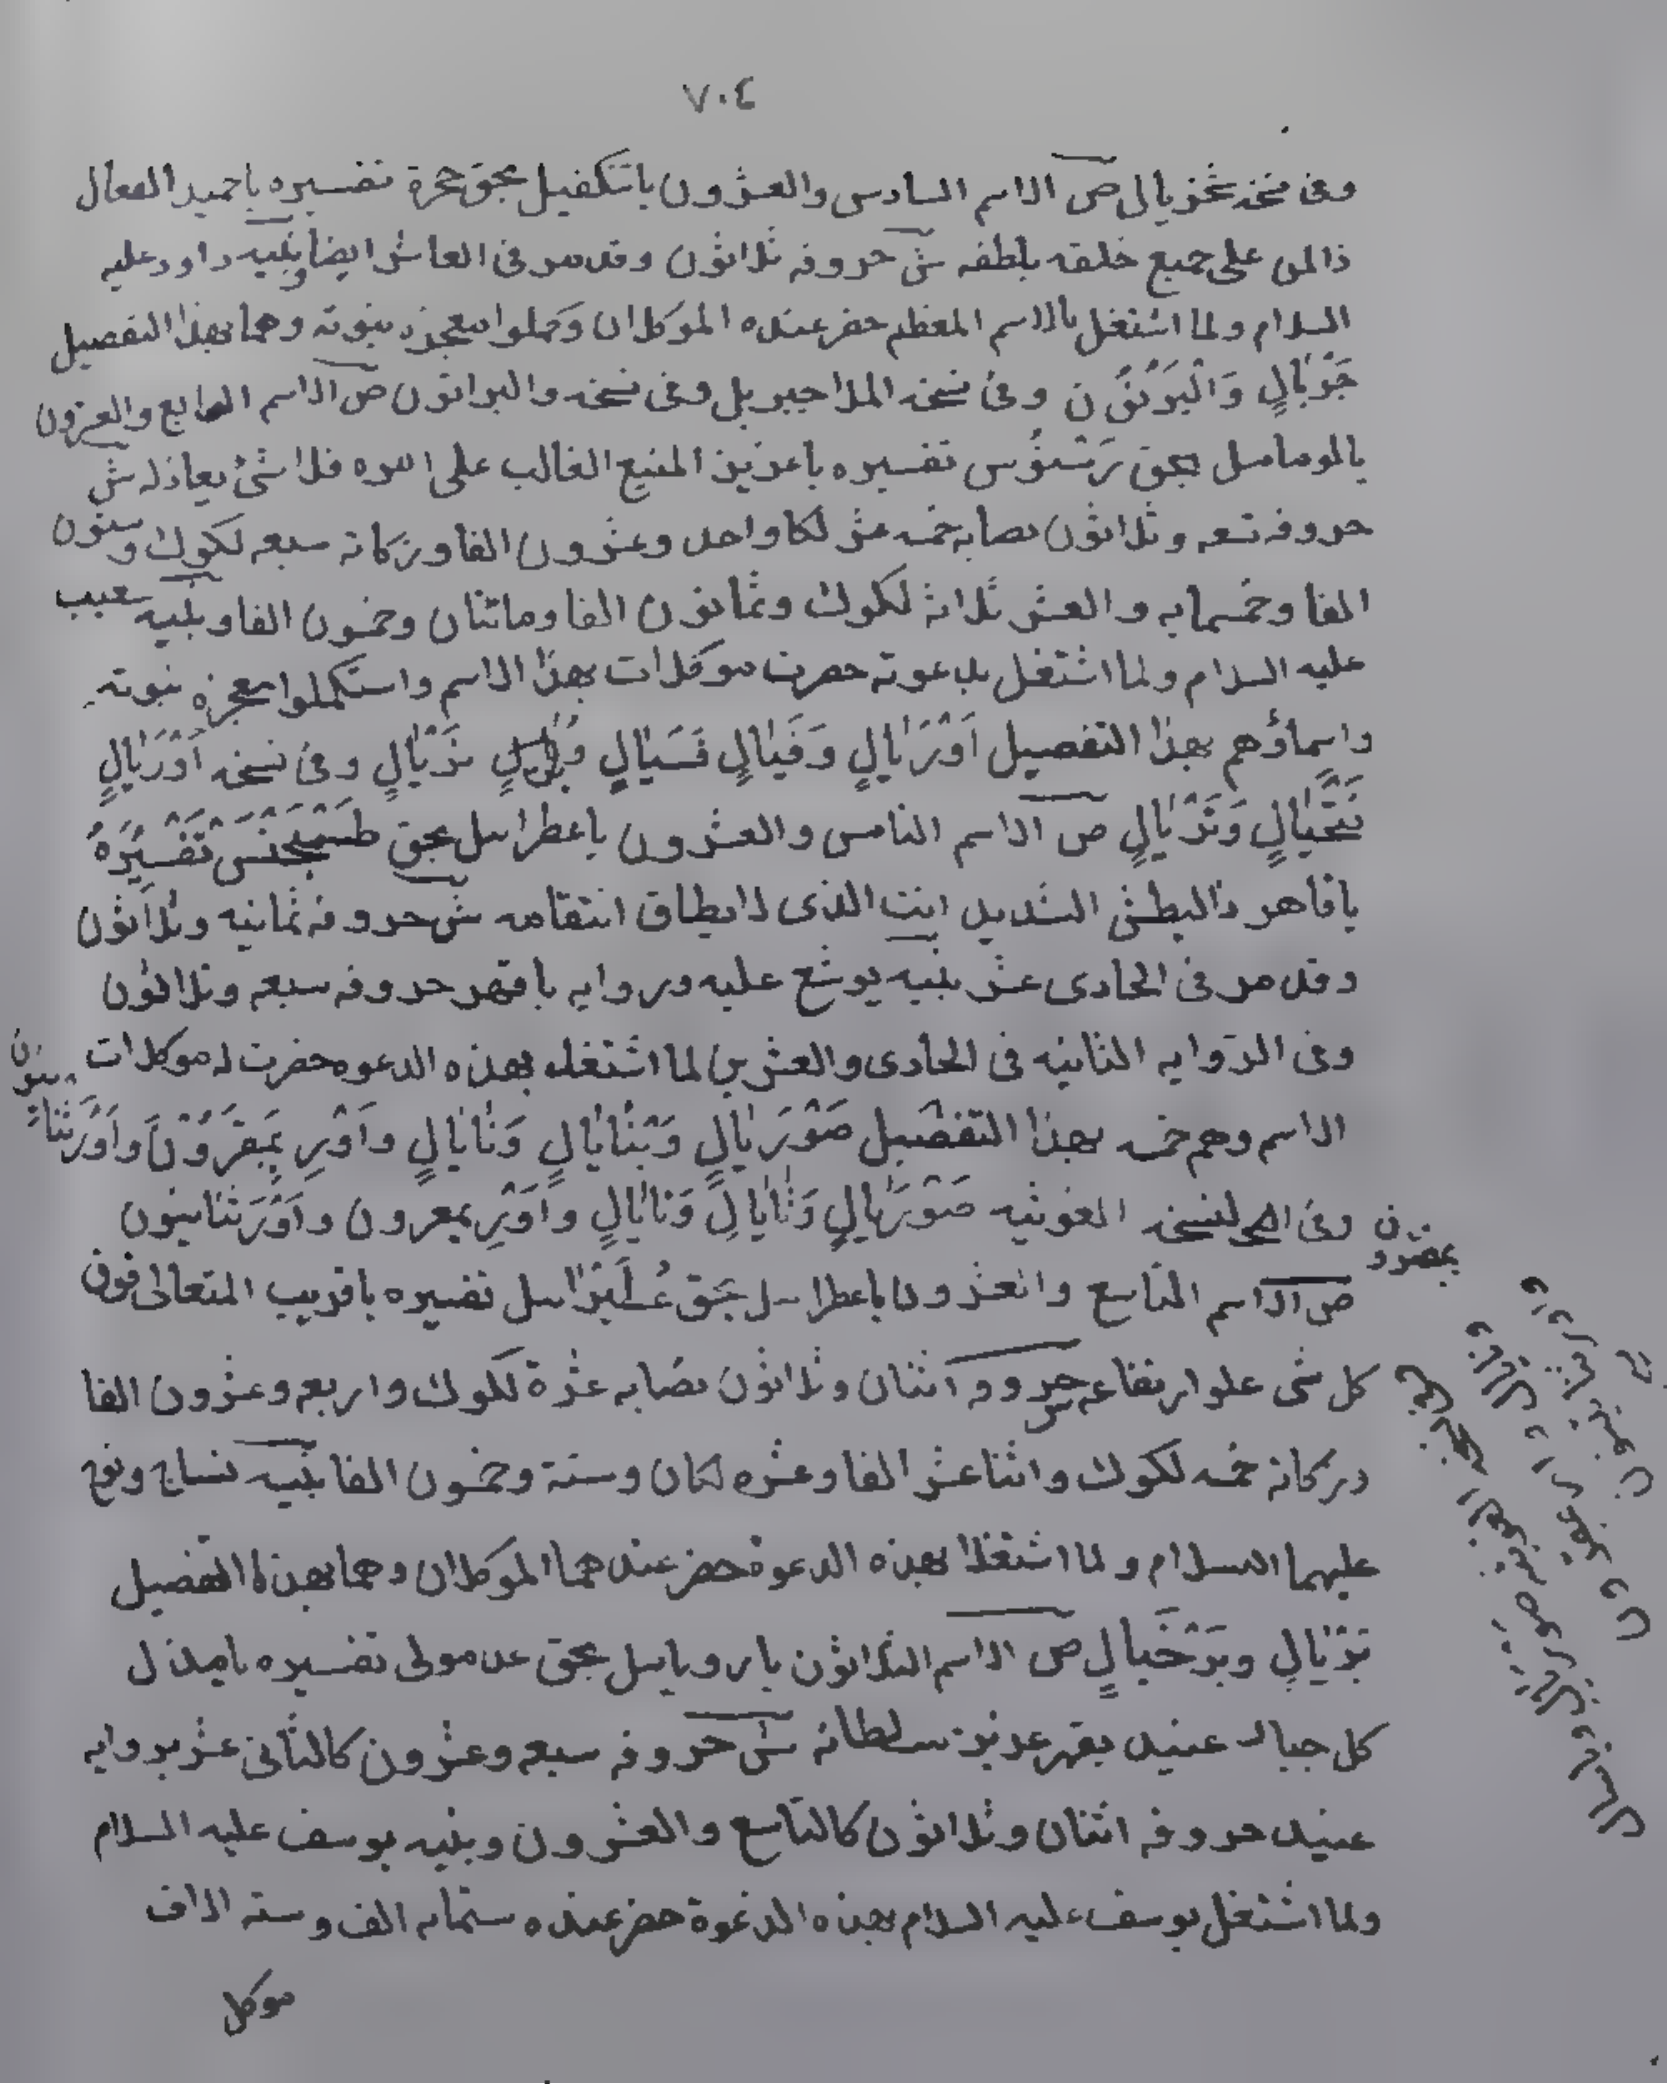 ٧٠٤
وفى نسخه شخزيال ص الاسم السادس والعشرون ياتنكفيل بحق حجرة تفسيره ياحميد الفعال
ذالمن على جميع خلقه بلطفه ش حروفه ثلاثون وقد مر فى العاشر ايضا ونبيه داود عليه
السلام ولما اشتغل بالاسم المعظم حضر عنده الموكلان وكملوا معجزه نبوته وهما بهذا التفصيل
وفى نسخه الملا جبريل وفى نسخه والبوانون ص الاسم السابع والعشرون
بحق تفسيره ياعزيز المنيع الغالب على امره فلا شئ يعادله ش
حروفه تسعه وثلاثون نصابه خمسه عشر لكا واحد وعشرون الفا وزكاته سبعه لكوك وستون
الفا وخمسمايه والعشر ثلاثه لكوك وثمانون الفا ومائتان وخمسون الفا ونبيه شعيب
عليه السلام ولما اشتغل بدعوته حضرت موكلات بهذا الاسم واستكملوا معجزه نبوته
واسماؤهم بهذا التفصيل اَوْرَيَالٍ وَقَيَالٍ قَسَيَالٍ نَرْيَالٍ وفى نسخه اَوْرَيَالٍ
ص الاسم الثامن والعشرون ياعطرائيل بحق تَفْسِيْرُهُ
ياقاهر ذالبطش الشديد انت الذى لايطاق انتقامه ش حروفه ثمانيه وثلاثون
وقد مر فى الحادى عشر نبيه يوشع عليه وروايه ياقهر حروفه سبعه وثلاثون
وفى الروايه الثانيه فى الحادى والعشرين لما اشتغل بهذه الدعوه حضرت له موكلات
الاسم وهم خمسه بهذا التفصيل صَوْرَيَالٍ وَنَايَالٍ وَاَوْرِ
وفى النسخه الغوثيه صَوْرَيَالٍ وَثَايَالٍ وَنَايَالٍ وَاَوْرِ يمعرون واَوْرَثنايئون
ص الاسم التاسع والعشرون ياعطرائيل بحق تفسيره ياقريب المتعالى فوق
كل شى علو ارتفاعه ش حروفه اثنان وثلاثون نصابه عشرة لكوك واربعه وعشرون الفا
وزكاته خمسه لكوك واثنا عشر الفا وعشره لكان وستة وخمسون الفا نبيه
عليهما السلام ولما اشتغلا بهذه الدعوة حضر عندهما الموكلان وهما بهذا التفصيل
نَوْيَالٍ وبَرْخَيَالٍ ص الاسم الثلاثون ياروياييل بحق تفسيره يامذل
كل جبار عنيد بقهر عزيز سلطانه ش حروفه سبعه وعشرون كالثانى عشر بروايه
عنيد حروفه اثنان وثلاثون كالتاسع والعشرون ونبيه يوسف عليه السلام
ولما اشتغل يوسف عليه السلام بهذه الدعوة حضر عنده ستمايه الف وسته الاف
موكل